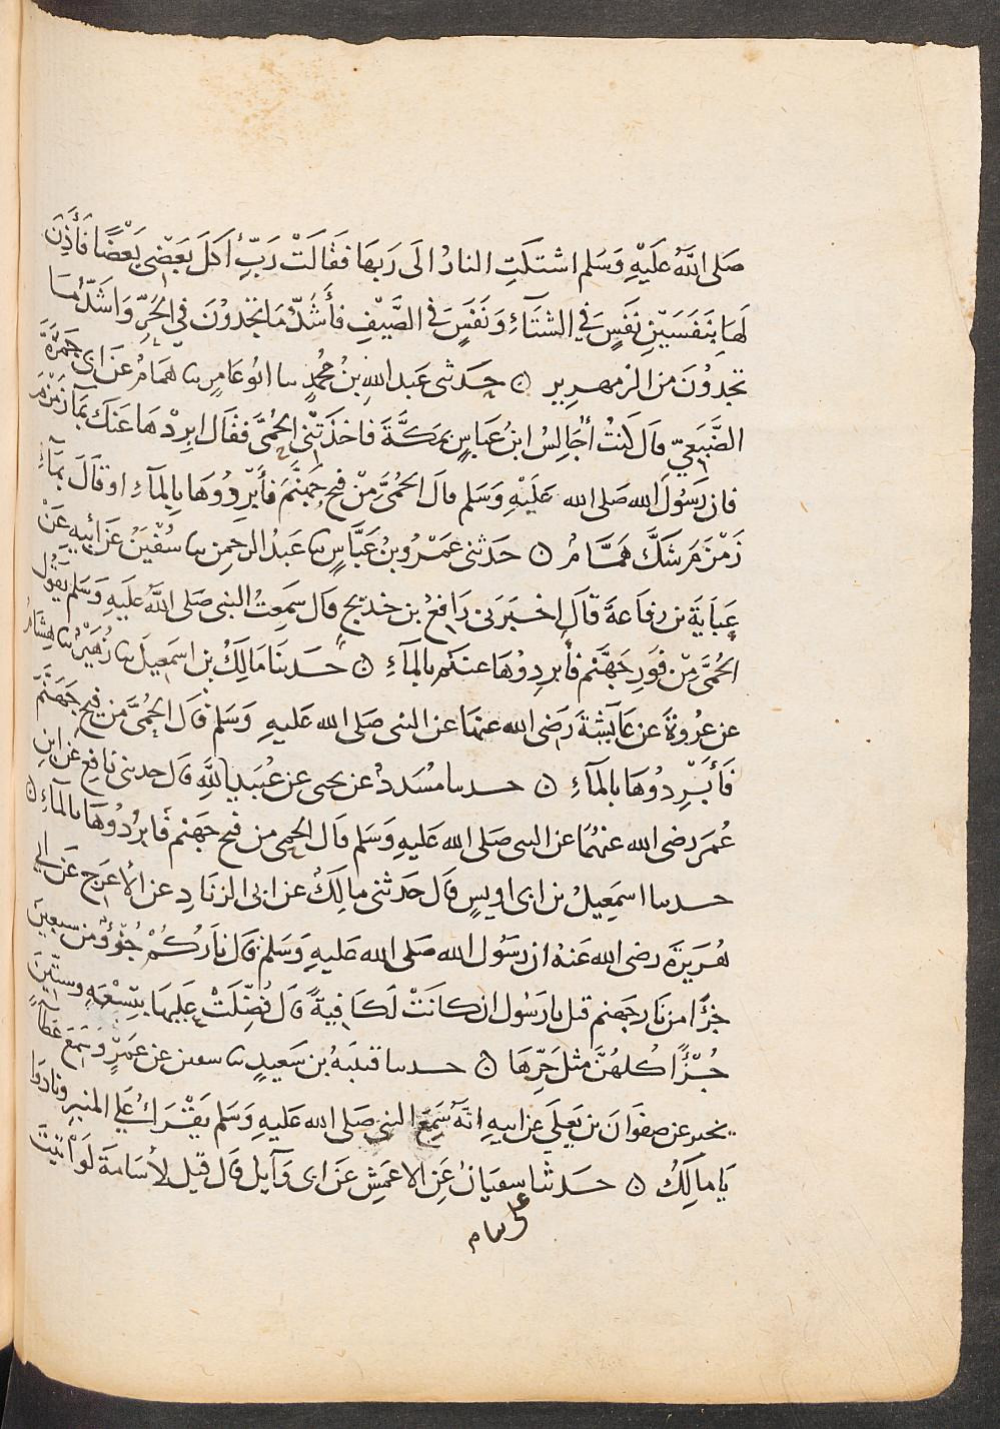 صَلى اللهُ عَلَيْهِ وَسَلم اشتكَتِ النارُ الَى رَبهَا فقَالَتْ رَبِّ أَكَلَ بَعْضِى بَعْضًا فَأَذِنَ
لَهَا بِنَفَسَيْنِ نَفَسٍ فِي الشتَآءِ وَنَفَسٍ فى الصَّيْفِ فأَشَدُّ مَا تجدُوْنَ فِي الحَرِّ وَاَشَدُّ مَا
تجدُوْنَ من الزمهرير ٥ حَدثنى عَبد اللهِ بْنُ مُحَمَّدٍ سا ابُو عَامِرٍ سا هَمَامُ عَن ابى جَمْرَةَ
الضُّبَعِيّ قالَ كنْتُ أُجَالِسُ ابنَ عَبَاسٍ بمَكَّةَ فاخذَتنى الحُمَّى فَقَال ابردْهَا عَنكَ بمَآءِ زَمْزَمَ
فان رَسُولَ الله صَلى الله عَلَيْهِ وَسَلم قالَ الحُمَّى مِنْ فَيح جَهَنَّمَ فأَبْردُوهَا بِالمآءِ او قَالَ بمَآءِ
زَمْزَمَ شَكَّ هَمَّامُ ٥ حَدثنى عَمْرُو بْنُ عَبَّاسٍ سا عَبدُ الرحَمن سا سُفْيَنُ عَن أَبِيهِ عَنْ
عَبَايَةَ بن رفَاعَةَ قَالَ اخْبَرَنى رَافعُ بن خديج قالَ سَمِعتُ النبى صَلى اللهُ عَلَيهِ وَسَلم يَقُولُ
الحُمَّى مِّن فَوْرِ جَهَّنم فأَبردِوْهَا عنكم بالمآءِ ٥ حَدثنَا مَالكُ بن اسمَعِيلَ سا زُهَيْرُ سا هِشَامُ
عن عُروةَ عن عَآئِشةَ رَضى الله عنهَا عن النبى صَلى الله عَليهِ وَسَلم قَالَ الحُمَّى من فَيحِ جَهَنَّمَ
فَأَبْرِدُوْهَا بالمآءِ ٥ حدسا مُسَددُ عن يحيى عن عُبَيد اللهِ قالَ حدثنى نَافِع عَن ابنِ
عُمَرَ رضى الله عنهُمَا عن النبى صَلى الله عَليهِ وَسَلم قالَ الحمى من فيح جَهنم فَابرُدُوْهَا بالمآءِ ٥
حدسا اسمَعِيلُ بن ابى اويسٍ قالَ حَدثنى مالكُ عن ابى الزنَادِ عن الأعرَجِ عَن ابى
هُرَيرَةَ رضى الله عَنهُ ان رَسُول الله صَلى الله عَليهِ وَسَلم قالَ نارُكُمْ جُزْؤٌ من سبعِينَ
جُزْءًا من نَارِ جَهَنم قيل يارَسُول ان كانَتْ لَكَافِيةً قالَ فُضِّلَتْ عَليهَا بتِسْعَهٍ وستّينَ
جُزْءًا كلهُنَّ مثلَ حَرِّهَا ٥ حدسا قتيبَهُ بن سَعِيدٍ سا سفين عن عَمْرٍو سَمِعَ عَطآءٍ
يخبر عن صفوَانَ بن يَعلَى عن ابيهِ انهُ سَمِعَ النبى صَلى الله عَليهِ وَسَلم يَقْرَأُ عَلى المنبرِ ونادَوا
يَا مالكُ ٥ حَدثنا سفيَانُ عَن الاعمَشِ عَن ابى وَآيل قالَ قيل لأسَامةَ لَوْ أتَيْتَ